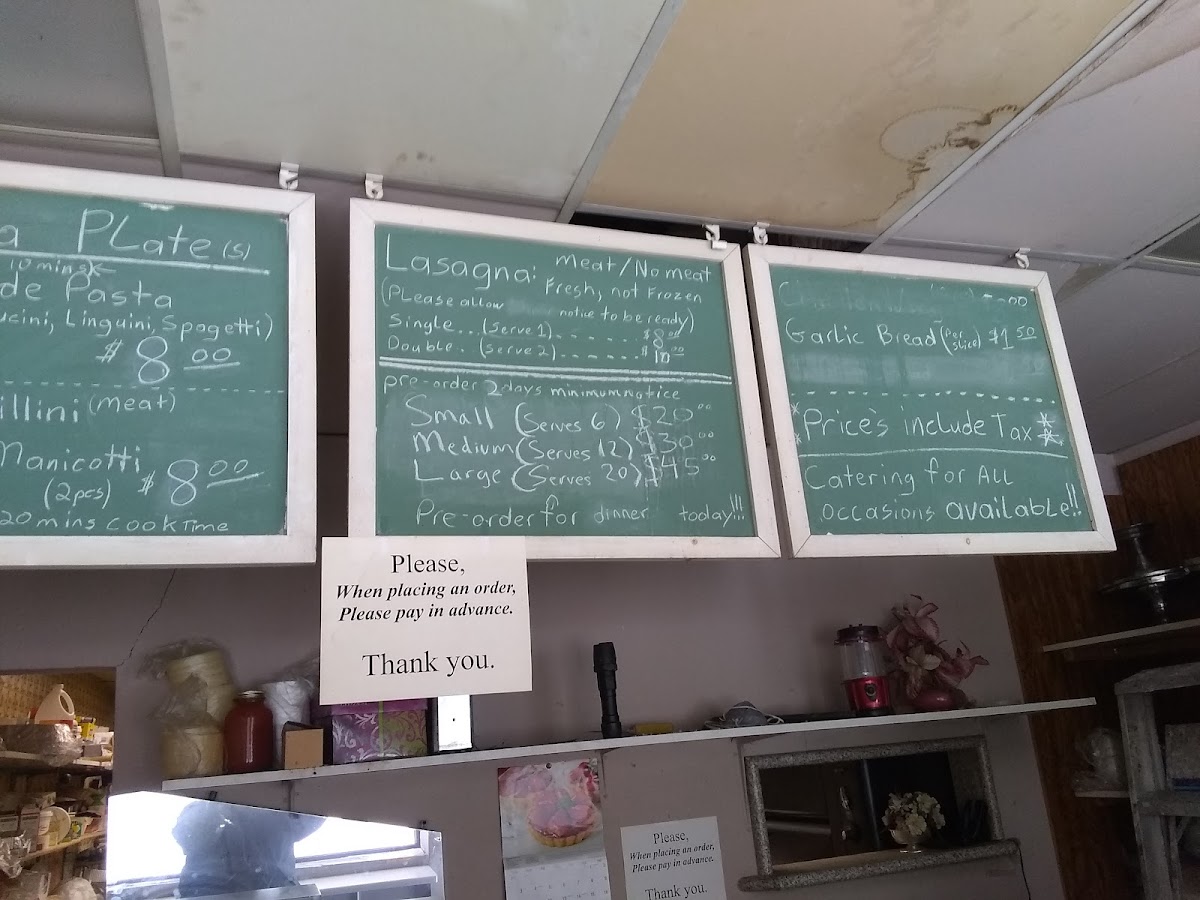 a PLate(s)
10 mins
de Pasta
ucini, Linguini, Spagetti)
$ 8 00
illini (meat)
Manicotti
(2pcs) $ 8 00
20 mins cook Time
Lasagna: meat/No meat
Fresh, not Frozen
(PLease allow notice to be ready)
Single... (Serve 1) - - - - - - $8 00
Double.. (Serve 2) - - - - - - $10 00
pre-order 2 days minimum notice
Small (Serves 6) $20 00
Medium (Serves 12) $30 00
Large (Serves 20) $45 00
Pre-order for dinner today!!!
Garlic Bread (Per slice) $1 50
*Price's include Tax*
Catering for ALL
occasions available!!
Please,
When placing an order,
Please pay in advance.
Thank you.
Please,
When placing an order,
Please pay in advance.
Thank you.